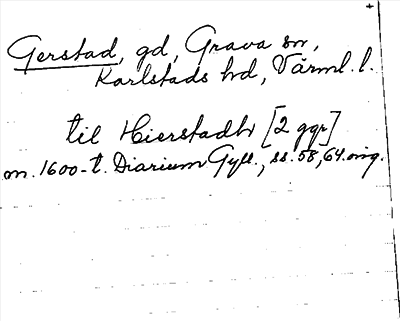 Gerstad, gd, Grava sn,
Karlstads hd, Värml. l.
til Hierstadh [2 ggr]
m. 1600-t. Diarium Gyll., ss. 58, 64. orig.